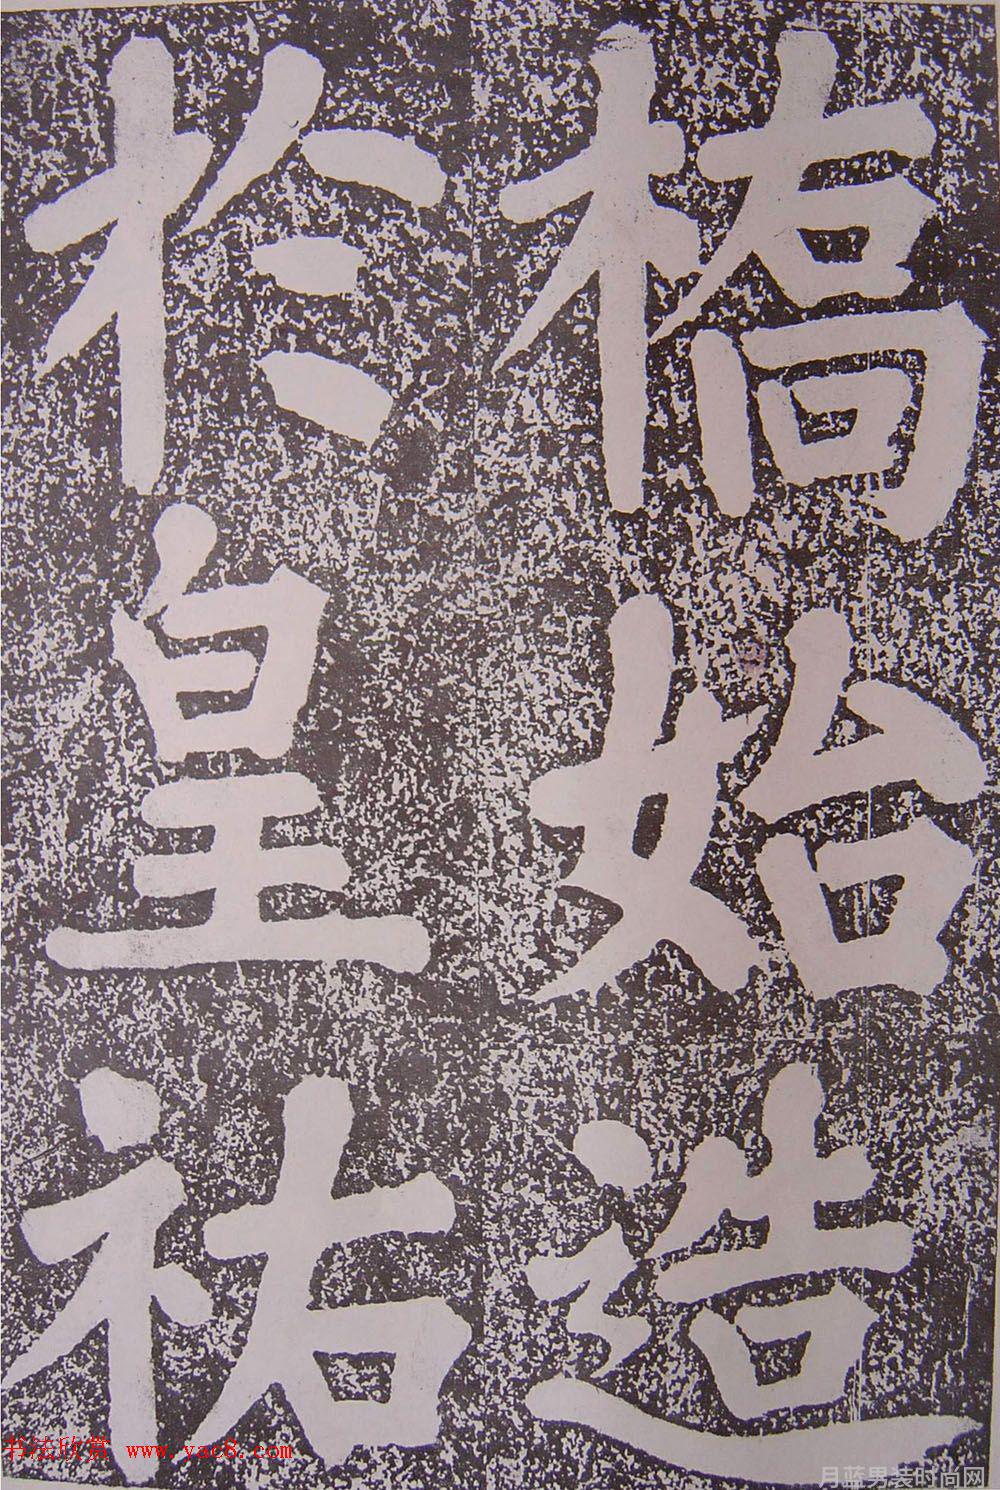 橋始造
於皇祐
书法欣赏 www.yac8.com
月蓝男装时尚网